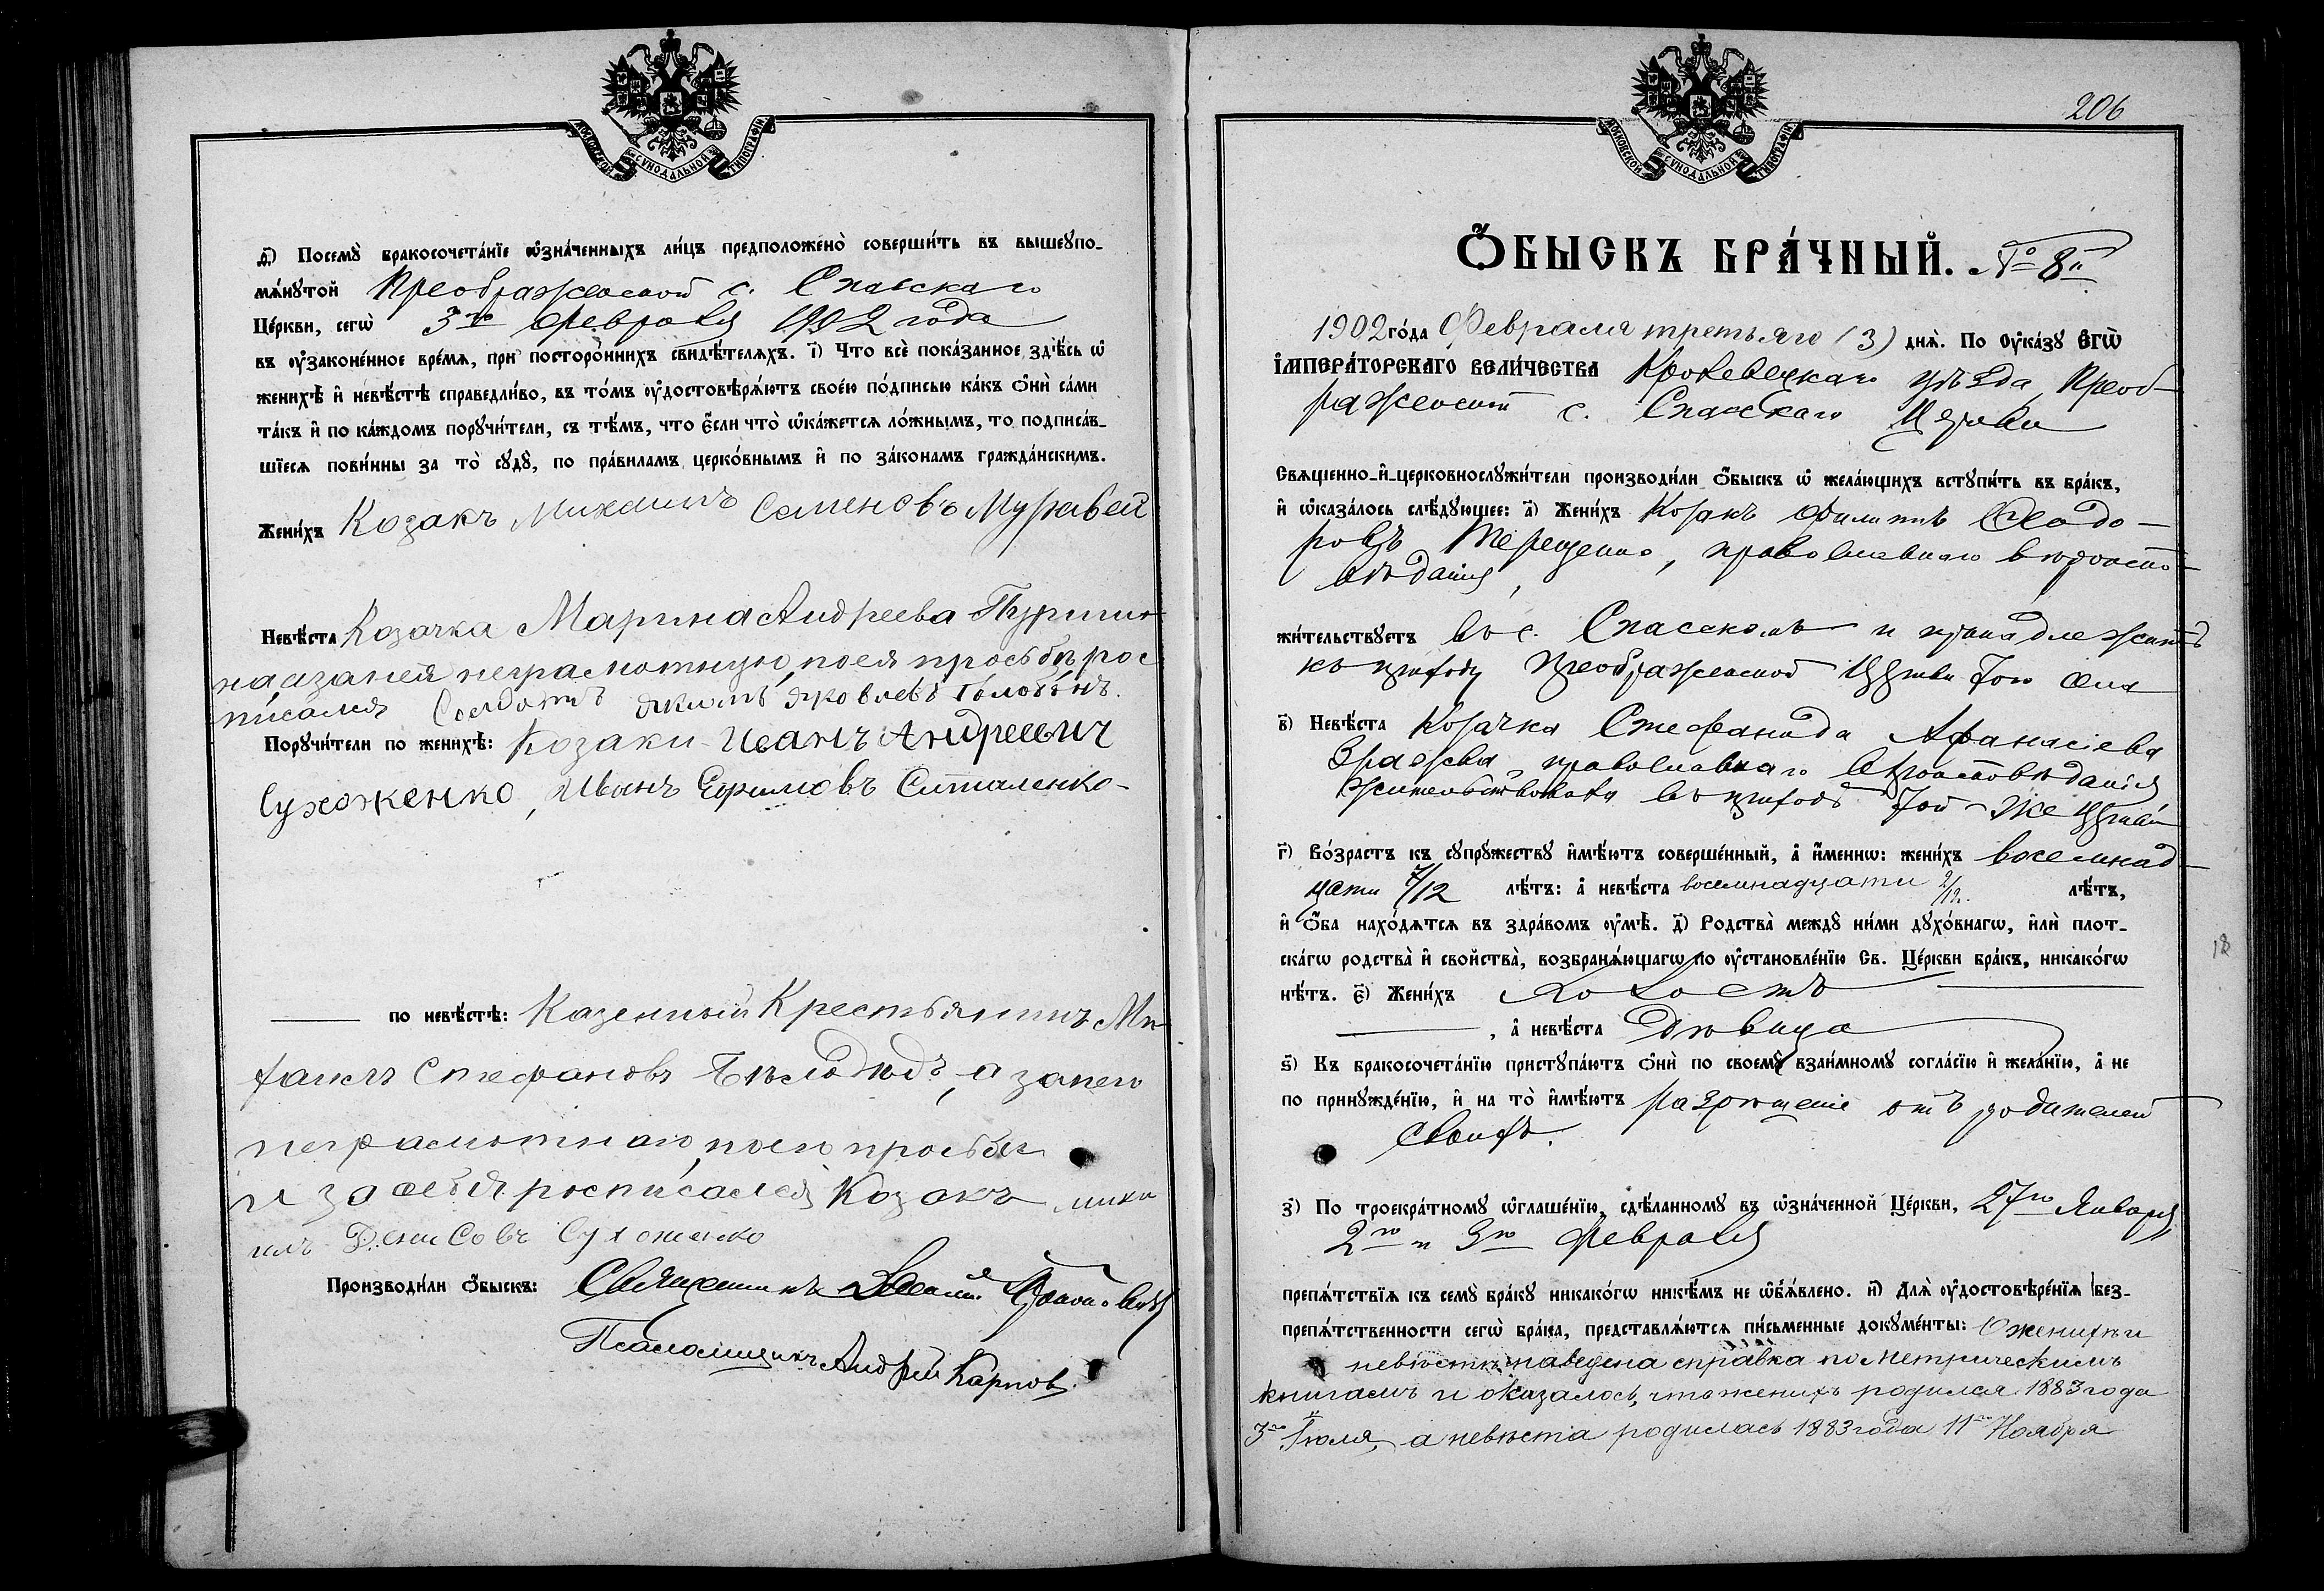 МОСКОВСКОЙ СѴНОДАЛЬНОЙ ТИПОГРАФІИ
д҃і) Посемꙋ̀ бракосочета́нїе ѡ҆зна́ченныхъ ли́цъ предположено̀ соверши́ть въ вышеꙋпо-
мѧ́нꙋтой Преображенской с. Спасскаго
Це́ркви, сегѡ̀ 3го Февраля 1902 года
въ ᲂу҆зако́ненное вре́мѧ, при посторо́ннихъ свидѣ́телѧхъ. і҃) Что всѐ пока́занное здѣ́сь ѡ҆
женихѣ̀ и҆ невѣ́стѣ справедли́во, въ то́мъ ᲂу҆достовѣрѧ́ютъ свое́ю по́дписью ка́къ ѻ҆нѝ са́ми
та́къ и҆ по ка́ждомъ порꙋчи́тели, съ тѣ́мъ, что є҆́сли что̀ ѡ҆ка́жетсѧ ло́жнымъ, то подписа́в-
шїесѧ пови́нны за то̀ сꙋдꙋ̀, по пра́виламъ церко́внымъ и҆ по зако́намъ гражда́нскимъ.
Жени́хъ Козакъ Михаилъ Семеновъ Муравей
Невѣ́ста Козачка Марина Андреева
на, а за ней неграмотную, по ея просьбѣ рос
писался Солдатъ Якимъ Яковлевъ
Порꙋчи́тели по женихѣ̀: Козаки Иванъ Андреевич
Сухоженко, Иванъ Ефимовъ Ситаленко-
по невѣ́стѣ: Казенный Крестьянинъ Ми
хаилъ Стефановъ Бѣлодѣдъ, а за него
неграмотнаго, по его просьбѣ
и за себя росписался Козакъ Миха
илъ Денисовъ Сухоженко
Производи́ли ѻ҆́быскъ: Священникъ
Псаломщикъ Андрей Карпов.
206
МОСКОВСКОЙ СѴНОДАЛЬНОЙ ТИПОГРАФІИ
Ѻ҆́БЫСКЪ БРА́ЧНЫЙ. № 8й
1902 го́да Февраля третьяго (3) днѧ̀. По ᲂу҆ка́зꙋ Є҆ГѠ̀
І҆МПЕРА́ТОРСКАГО ВЕЛИ́ЧЕСТВА Кролевецкаго уѣзда Преоб-
раженской с. Спасскаго Церкви
Свѧще́нно-и҆-церковнослꙋжи́тели производи́ли ѻ҆́быскъ ѡ҆ жела́ющихъ встꙋпи́ть въ бра́къ,
и҆ ѡ҆каза́лось слѣ́дꙋющее: а҃) Жени́хъ Козакъ Филиппъ Ѳеодо-
ровъ Терещенко, православнаго вѣроиспо-
вѣданія,
жи́тельствꙋетъ въ с. Спасскомъ и принадлежитъ
къ приходу Преображенской Церкви того села
в҃) Невѣ́ста Козачка Стефанида Афанасіева
православнаго вѣроисповѣданія
жительствовала въ приходѣ той-же Церкви
г҃) Во́зрастъ къ сꙋпрꙋ́жествꙋ и҆мѣ́ютъ соверше́нный, а҆ и҆́меннѡ: жени́хъ восемнад-
цати 7/12 лѣ́тъ: а҆ невѣ́ста восемнадцати 2/12. лѣ́тъ,
и҆ ѻ҆́ба нахо́дѧтсѧ въ здра́вомъ ᲂу҆мѣ̀. д҃) Родства̀ междꙋ̀ ни́ми дꙋхо́внагѡ, и҆лѝ плот-
ска́гѡ родства̀ и҆ свойства̀, возбранѧ́ющагѡ по ᲂу҆становле́нїю Св. Це́ркви бра́къ, никако́гѡ
нѣ́тъ. є҃) Жени́хъ холостъ
, а҆ невѣ́ста дѣвица
ѕ҃) Къ бракосочета́нїю пристꙋпа́ютъ ѻ҆нѝ по своемꙋ̀ взаи́мномꙋ согла́сїю и҆ жела́нїю, а҆ не
по принꙋжде́нїю, и҆ на то̀ и҆мѣ́ютъ разрѣшеніе отъ родителей
своихъ.
з҃) По троекра́тномꙋ ѡ҆глаше́нїю, сдѣ́ланномꙋ въ ѡ҆зна́ченной Це́ркви, 27го Января,
2го и 3го Февраля
препѧ́тствїѧ къ семꙋ̀ бра́кꙋ никако́гѡ никѣ́мъ не ѡ҆б̾ѧ́влено. и҃) Длѧ̀ ᲂу҆достовѣре́нїѧ без-
препѧ́тственности сегѡ̀ бра́ка, представлѧ́ютсѧ пи́сьменные докꙋме́нты: О женихѣ и
невѣстѣ наведена справка по метрическимъ
книгамъ и оказалось, что женихъ родился 1883 года
3го Іюля, а невѣста родилась 1883 года 11го Ноября
18